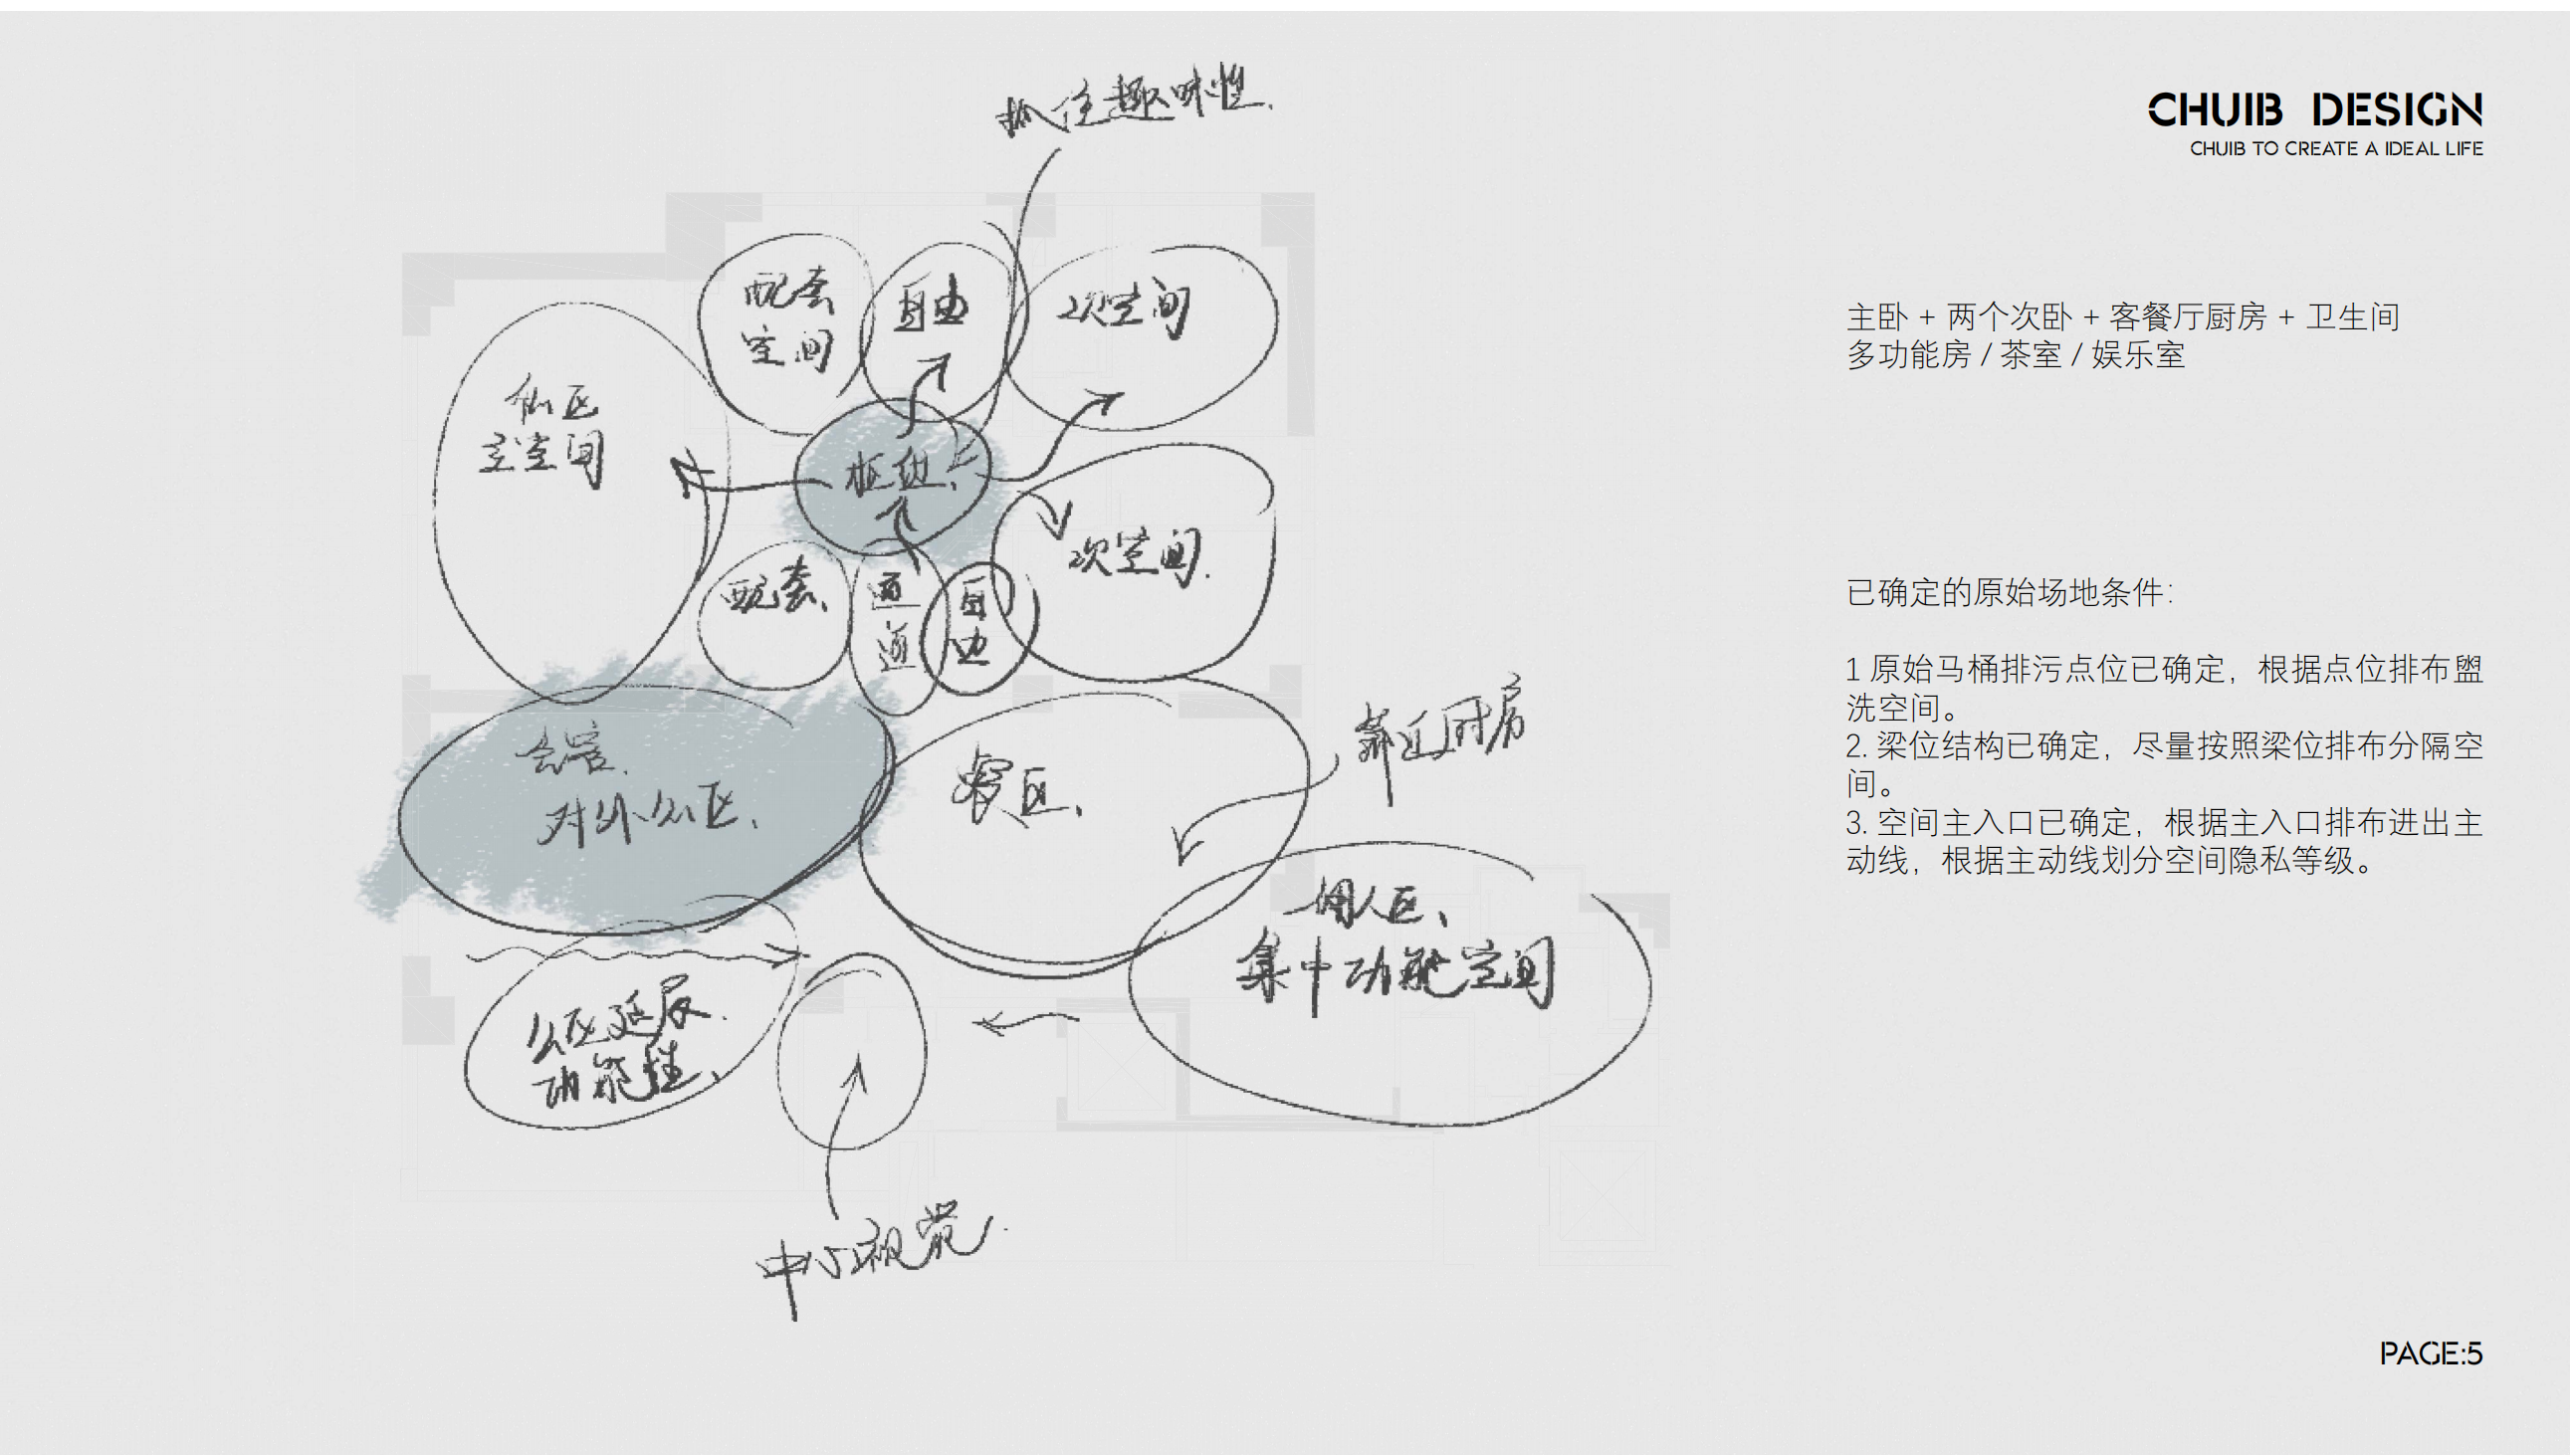 抓住趣味性.
CHUIB DESIGN
CHUIB TO CREATE A IDEAL LIFE
配套
空间
自由
次空间
私区
主空间
枢纽.
次空间.
配套、
通
道
自
由
主卧 + 两个次卧 + 客餐厅厨房 + 卫生间
多功能房 / 茶室 / 娱乐室
已确定的原始场地条件：
1 原始马桶排污点位已确定，根据点位排布盥
洗空间。
2. 梁位结构已确定，尽量按照梁位排布分隔空
间。
3. 空间主入口已确定，根据主入口排布进出主
动线，根据主动线划分空间隐私等级。
会客、
对外公区、
餐区、
靠近厨房
佣人区、
集中功能空间
公区延展.
功能性、
中心视觉.
PAGE:5